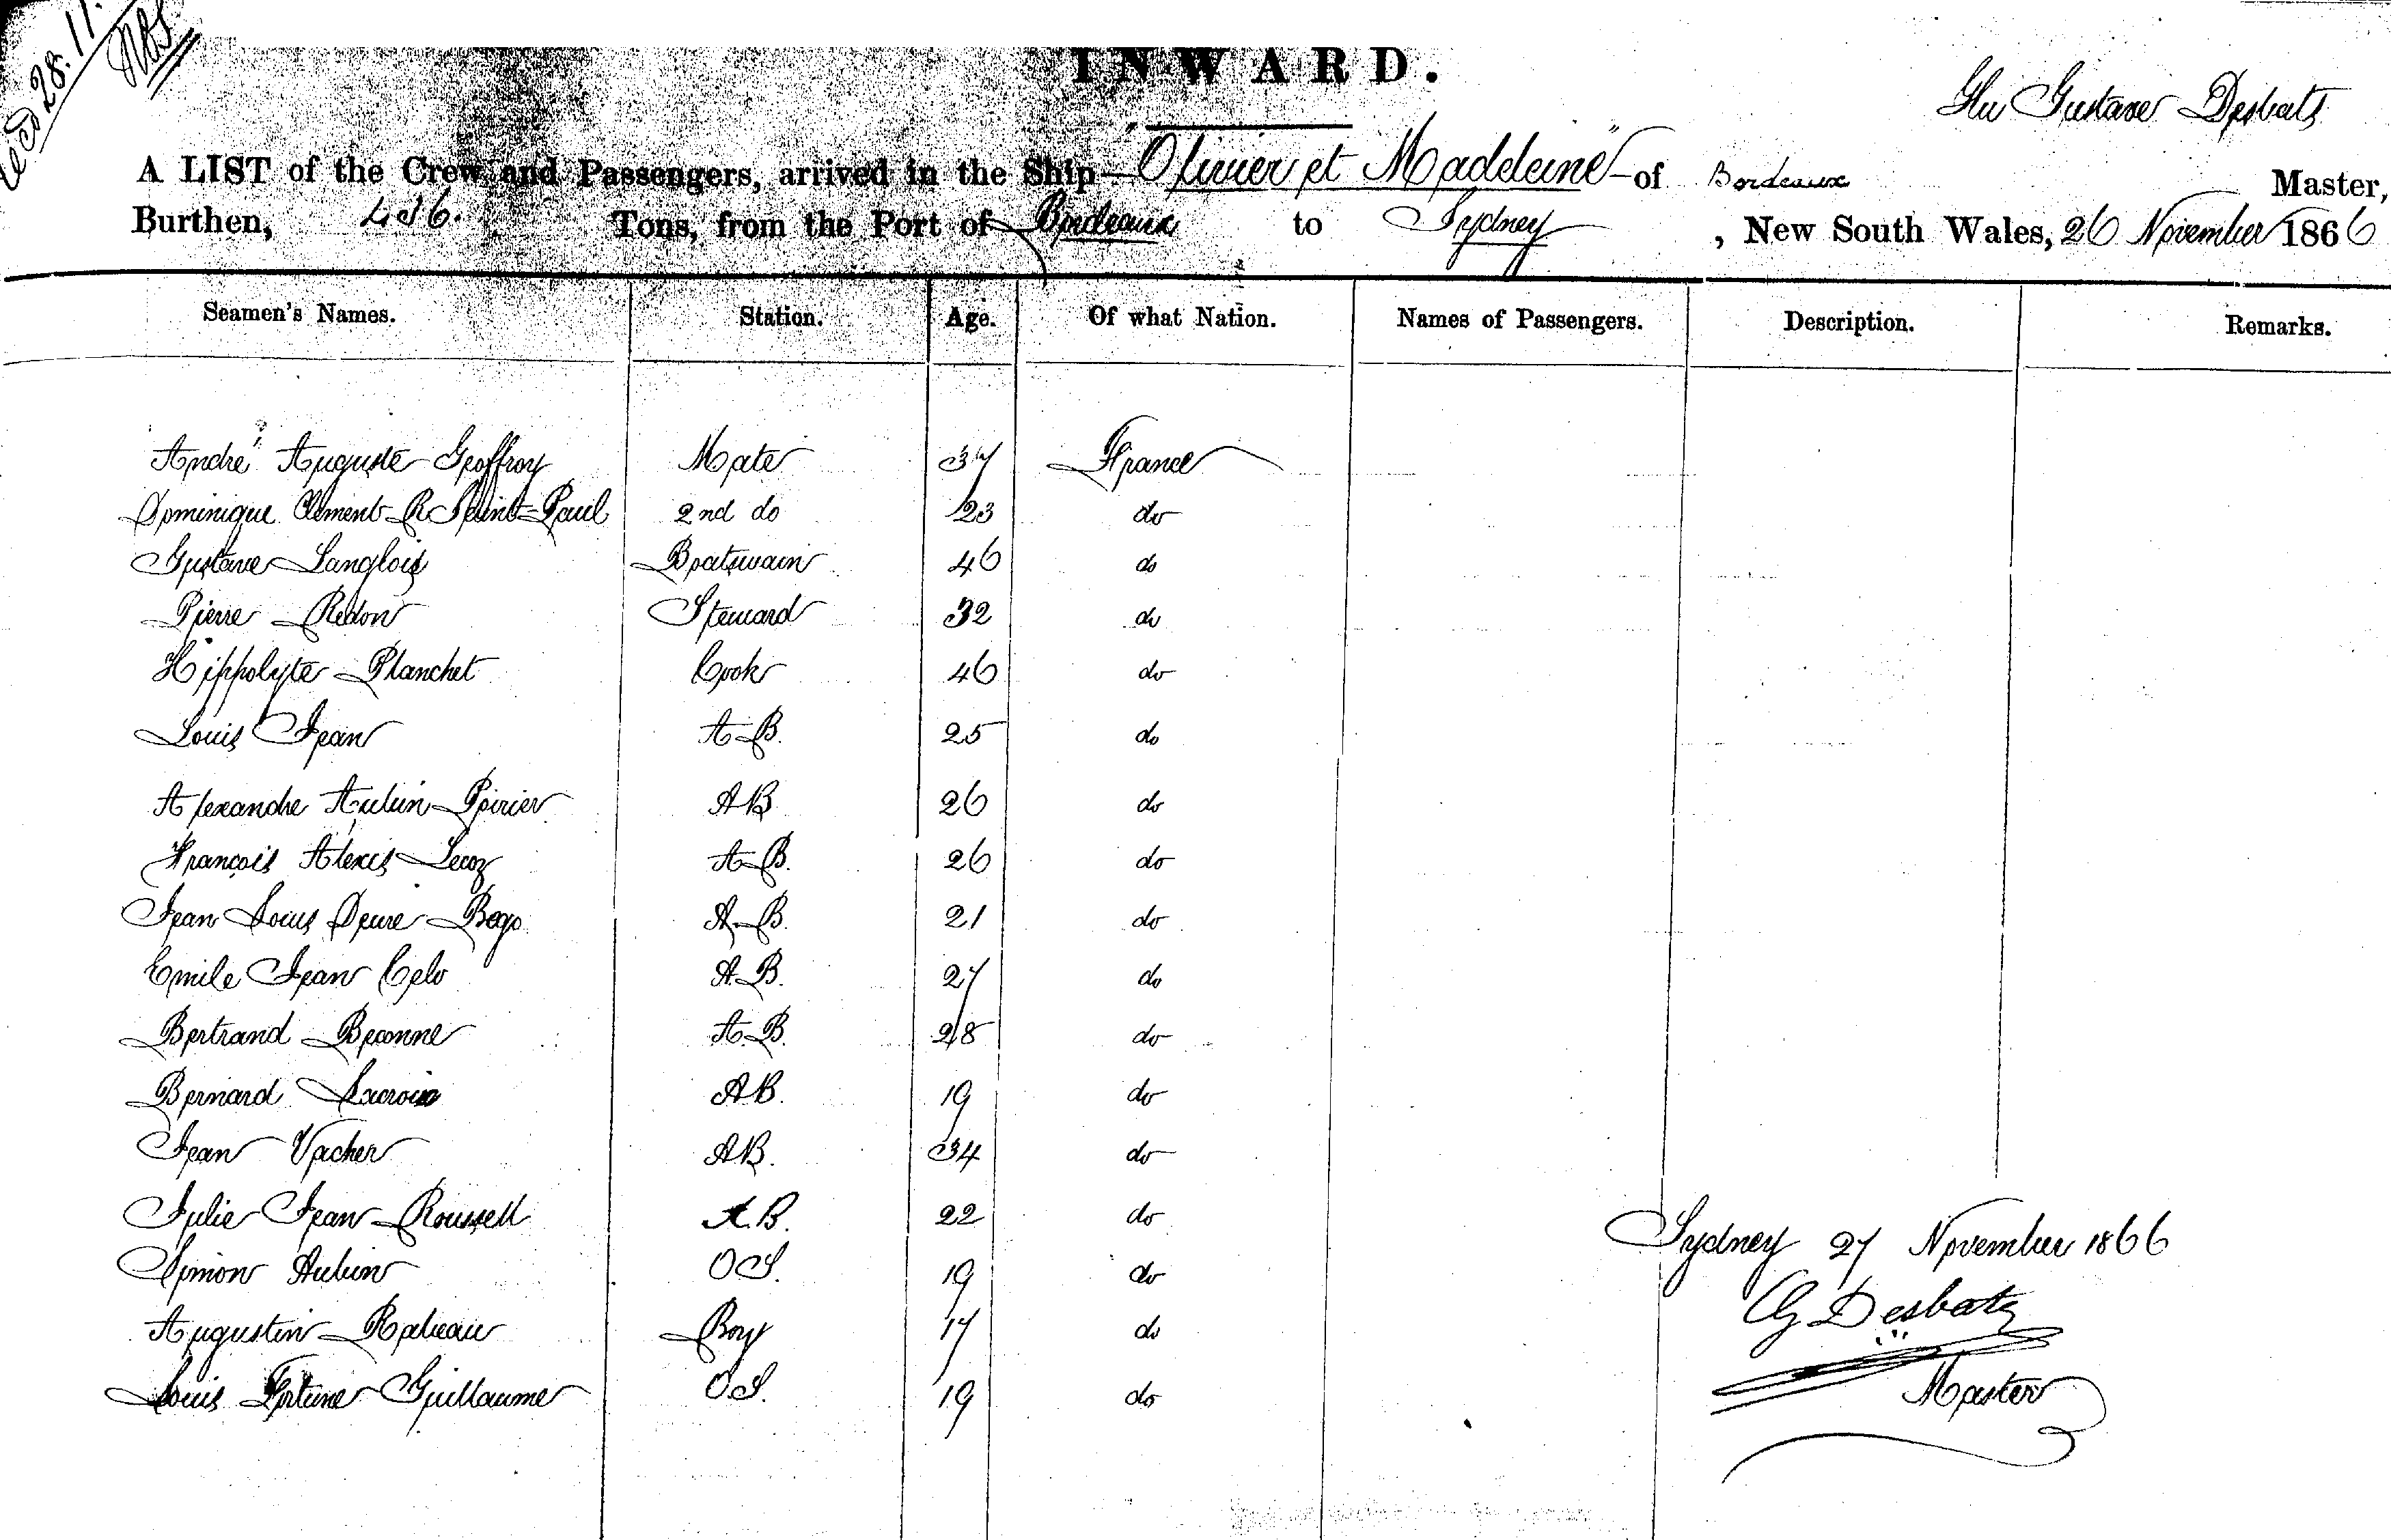 28.11.
INWARD.
Gustave Desbats
A LIST of the Crew and Passengers, arrived in the Ship "Olivier et Madeleine" of Bordeaux Master,
Burthen, 436. Tons, from the Port of Bordeaux to Sydney, New South Wales, 26 November 1866
Seamen's Names. Station. Age. Of what Nation. Names of Passengers. Description. Remarks.
André Auguste Geoffroy Mate 37 France
Dominique Clément R Saint-Paul 2nd do 23 do
Gustave Langlois Boatswain 46 do
Pierre Redon Steward 32 do
Hippolyte Planchet Cook 46 do
Louis Jean A.B. 25 do
Alexandre Aubin Poirier AB 26 do
François Alexis Lecoz A.B. 26 do
Jean Louis Bego A.B. 21 do
Emile Jean Celo A.B. 27 do
Bertrand Beconne A.B. 28 do
Bernard Lacroix AB. 19 do
Jean Vacher AB. 34 do
Julie Jean Roussell A.B. 22 do
Simon Aubin O.S. 19 do
Augustin Rabeau Boy 17 do
Louis Fortune Guillaume O.S. 19 do
Sydney 27 November 1866
G Desbats
Master